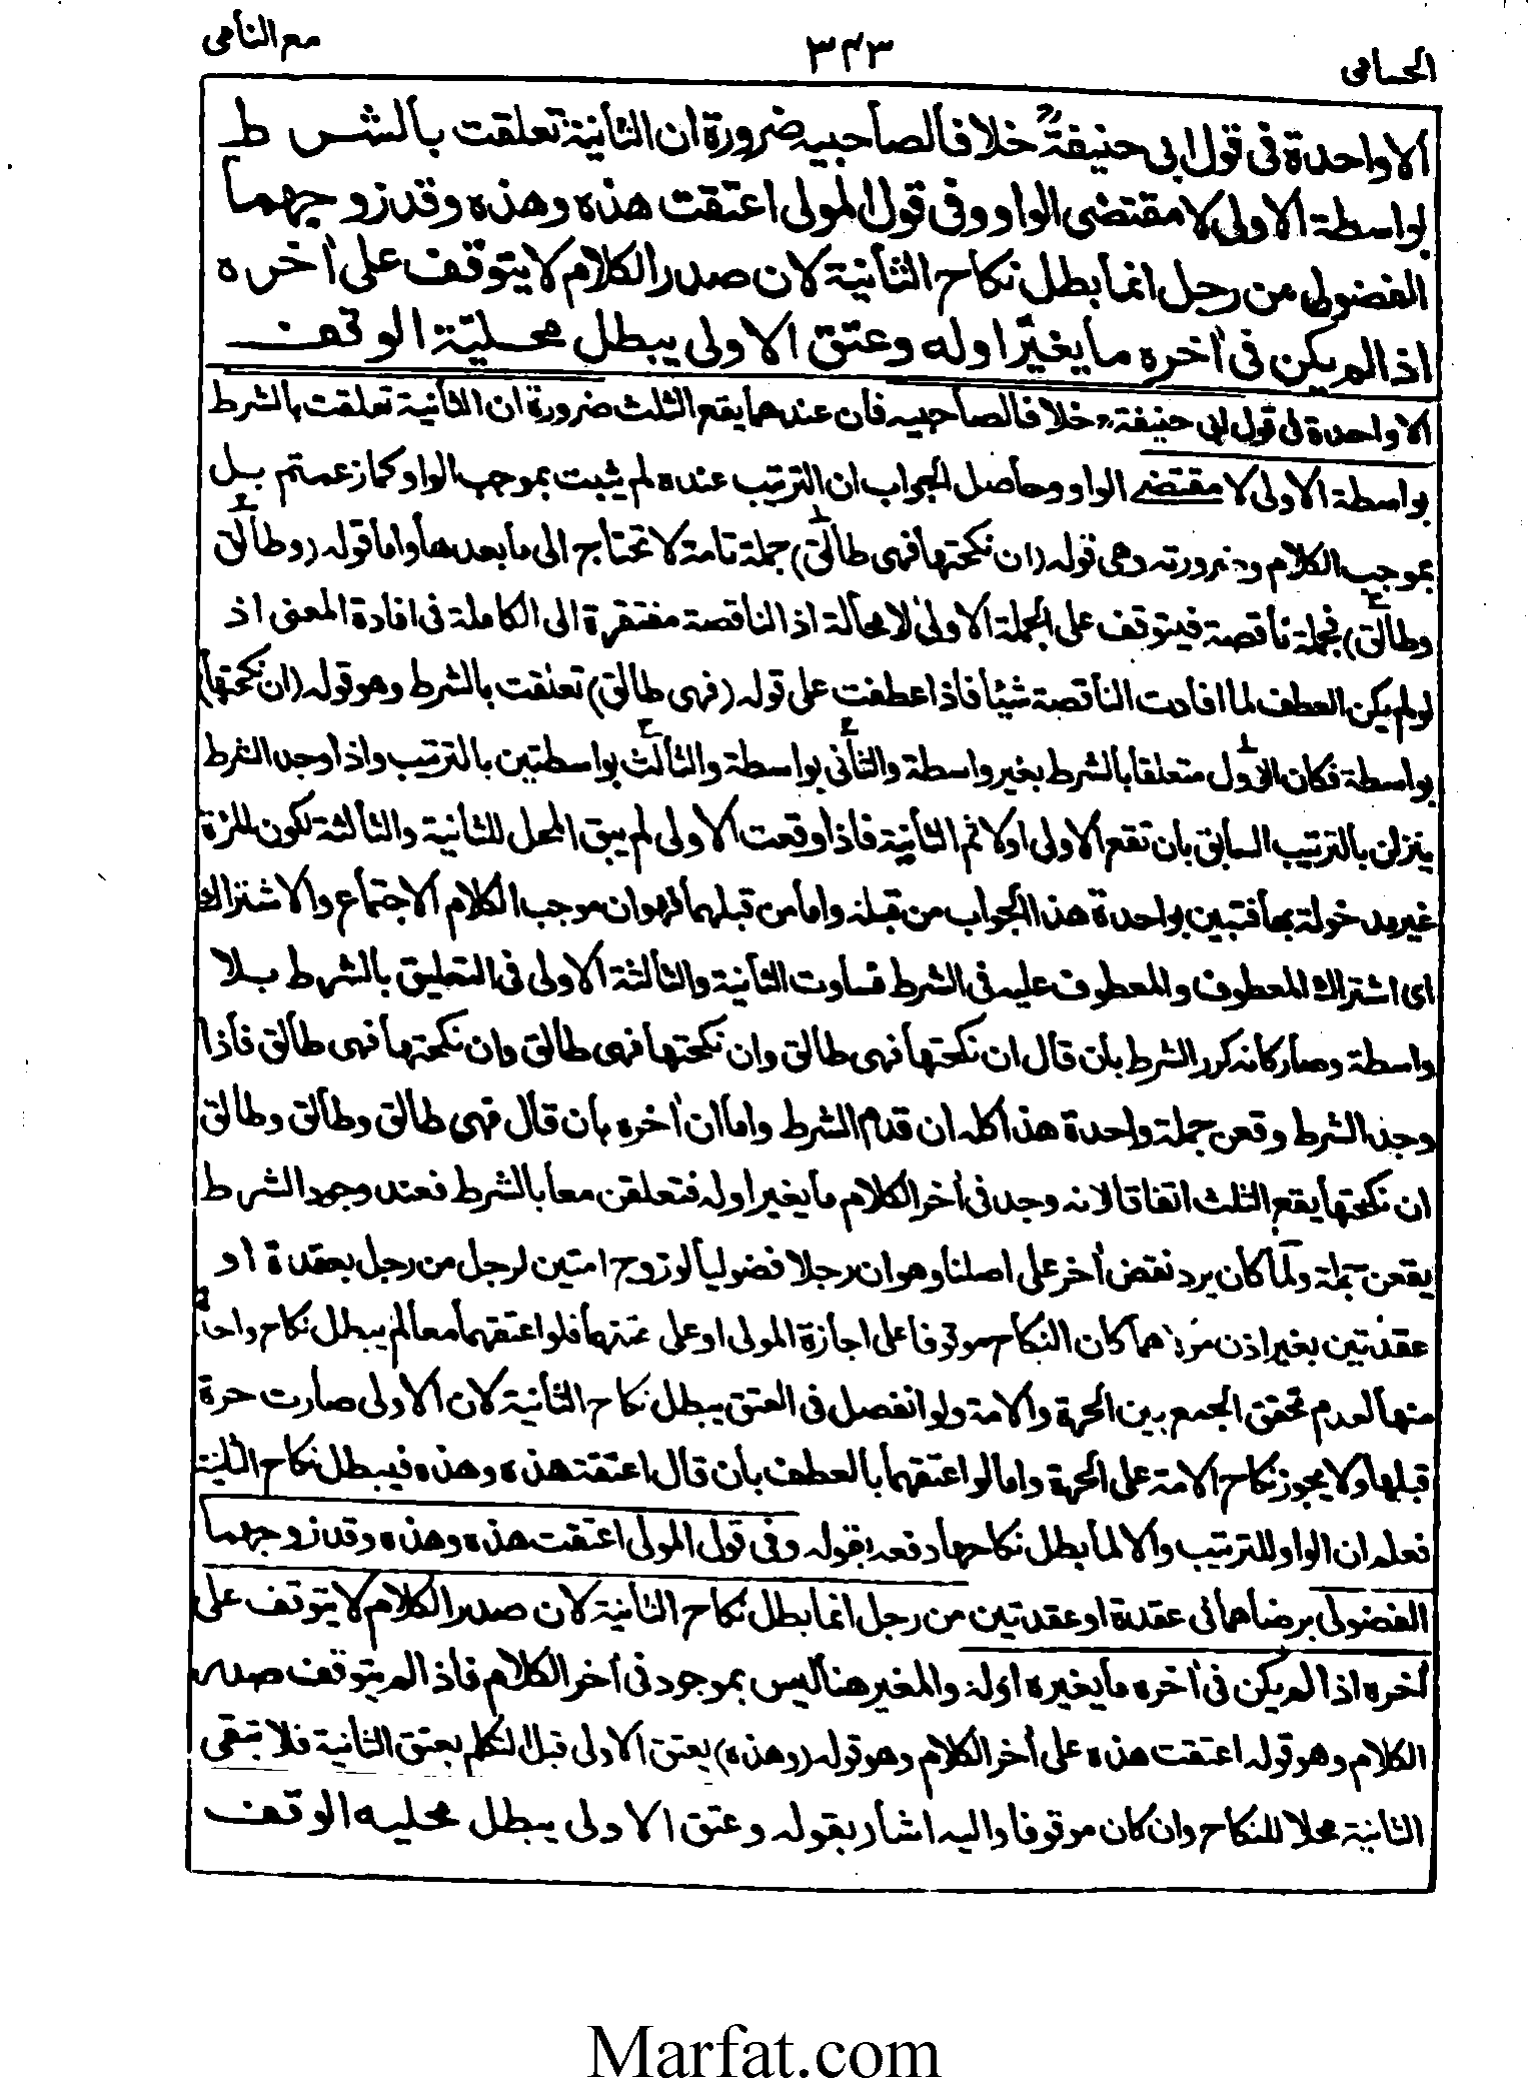 الحسامی
۳۴۳
مع النامی
الا واحدة فی قول ابی حنیفةؒ خلافا لصاحبیہ ضرورة ان الثانیة تعلقت بالشرط
بواسطة الاولی لا مقتضی الواو وفی قول المولی اعتقت هذہ وهذہ وقد زوجهما
الفضولی من رجل انما بطل نکاح الثانیة لان صدر الکلام لا یتوقف علی اٰخرہ
اذا لم یکن فی اٰخرہ ما یغیّر اولہ وعتق الاولی یبطل محلیّة الوقف
الا واحدة فی قول ابی حنیفة خلافا لصاحبیہ فان عندهما یقع الثلث ضرورة ان الثانیة تعلقت بالشرط
بواسطة الاولی لا مقتضے الواو وحاصل الجواب ان الترتیب عندہ لم یثبت بموجب الواو کما زعمتم بل
بموجب الکلام وضرورتہ وهی قولہ (ان نکحتها فهی طالق) جملة تامة لا تحتاج الی ما بعدها واما قولہ (وطالق
وطالق) فجملة ناقصة فیتوقف علی الجملة الاولیٰ لا محالة اذ الناقصة مفتقرة الی الکاملة فی افادة المعنی اذ
لو لم یکن العطف لما افادت الناقصة شیئا فاذا عطفت علی قولہ (فهی طالق) تعلقت بالشرط وهو قولہ (ان نکحتها)
بواسطة فکان الاول متعلقا بالشرط بغیر واسطة والثانی بواسطة والثالث بواسطتین بالترتیب واذا وجد الشرط
ینزلن بالترتیب السابق بان تقع الاولی اولا ثم الثانیة فاذا وقعت الاولی لم یبق المحل للثانیة والثالثة لکون المرأة
غیر مدخولة بها فتبین بواحدة هذا الجواب من قبلہ واما من قبلهما فهو ان موجب الکلام الاجتماع والاشتراک
ای اشتراک المعطوف والمعطوف علیہ فی الشرط فساوت الثانیة والثالثة الاولی فی التعلیق بالشرط بلا
واسطة وصار کانہ کرر الشرط بان قال ان نکحتها فهی طالق وان نکحتها فهی طالق وان نکحتها فهی طالق فاذا
وجد الشرط وقعن جملة واحدة هذا کلہ ان قدم الشرط واما ان اٰخرہ بان قال فهی طالق وطالق وطالق
ان نکحتها یقع الثلث اتفاقا لانہ وجد فی اٰخر الکلام ما یغیر اولہ فتعلقن معا بالشرط فعند وجود الشرط
یقعن جملة ولما کان یرد نقض اٰخر علی اصلنا وهو ان رجلا فضولیا لو زوج امتین لرجل من رجل بعقدة او
عقدتین بغیر اذن مولاهما کان النکاح موقوفا علی اجازة المولی او علی عتقها فلو اعتقهما معا لم یبطل نکاح واحدة
منها لعدم تحقق الجمع بین الحرة والامة ولو انفصل فی العتق یبطل نکاح الثانیة لان الاولی صارت حرة
قبلها ولا یجوز نکاح الامة علی الحرة واما لو اعتقهما بالعطف بان قال اعتقت هذہ وهذہ فیبطل نکاح الثانیة
فعلم ان الواو للترتیب والا لما بطل نکاحها دفعہ بقولہ وفی قول المولی اعتقت هذہ وهذہ وقد زوجهما
الفضولی برضاهما فی عقدة او عقدتین من رجل انما بطل نکاح الثانیة لان صدر الکلام لا یتوقف علی
اٰخرہ اذا لم یکن فی اٰخرہ ما یغیرہ اولہ والمغیر هنا لیس بموجود فی اٰخر الکلام فاذا لم یتوقف صدر
الکلام وهو قولہ اعتقت هذہ علی اٰخر الکلام وهو قولہ (وهذہ) یعتق الاولی قبل التکلم بعتق الثانیة فلا تبقی
الثانیة محلا للنکاح وان کان موقوفا والیہ اشار بقولہ وعتق الاولی یبطل محلیة الوقف
Marfat.com